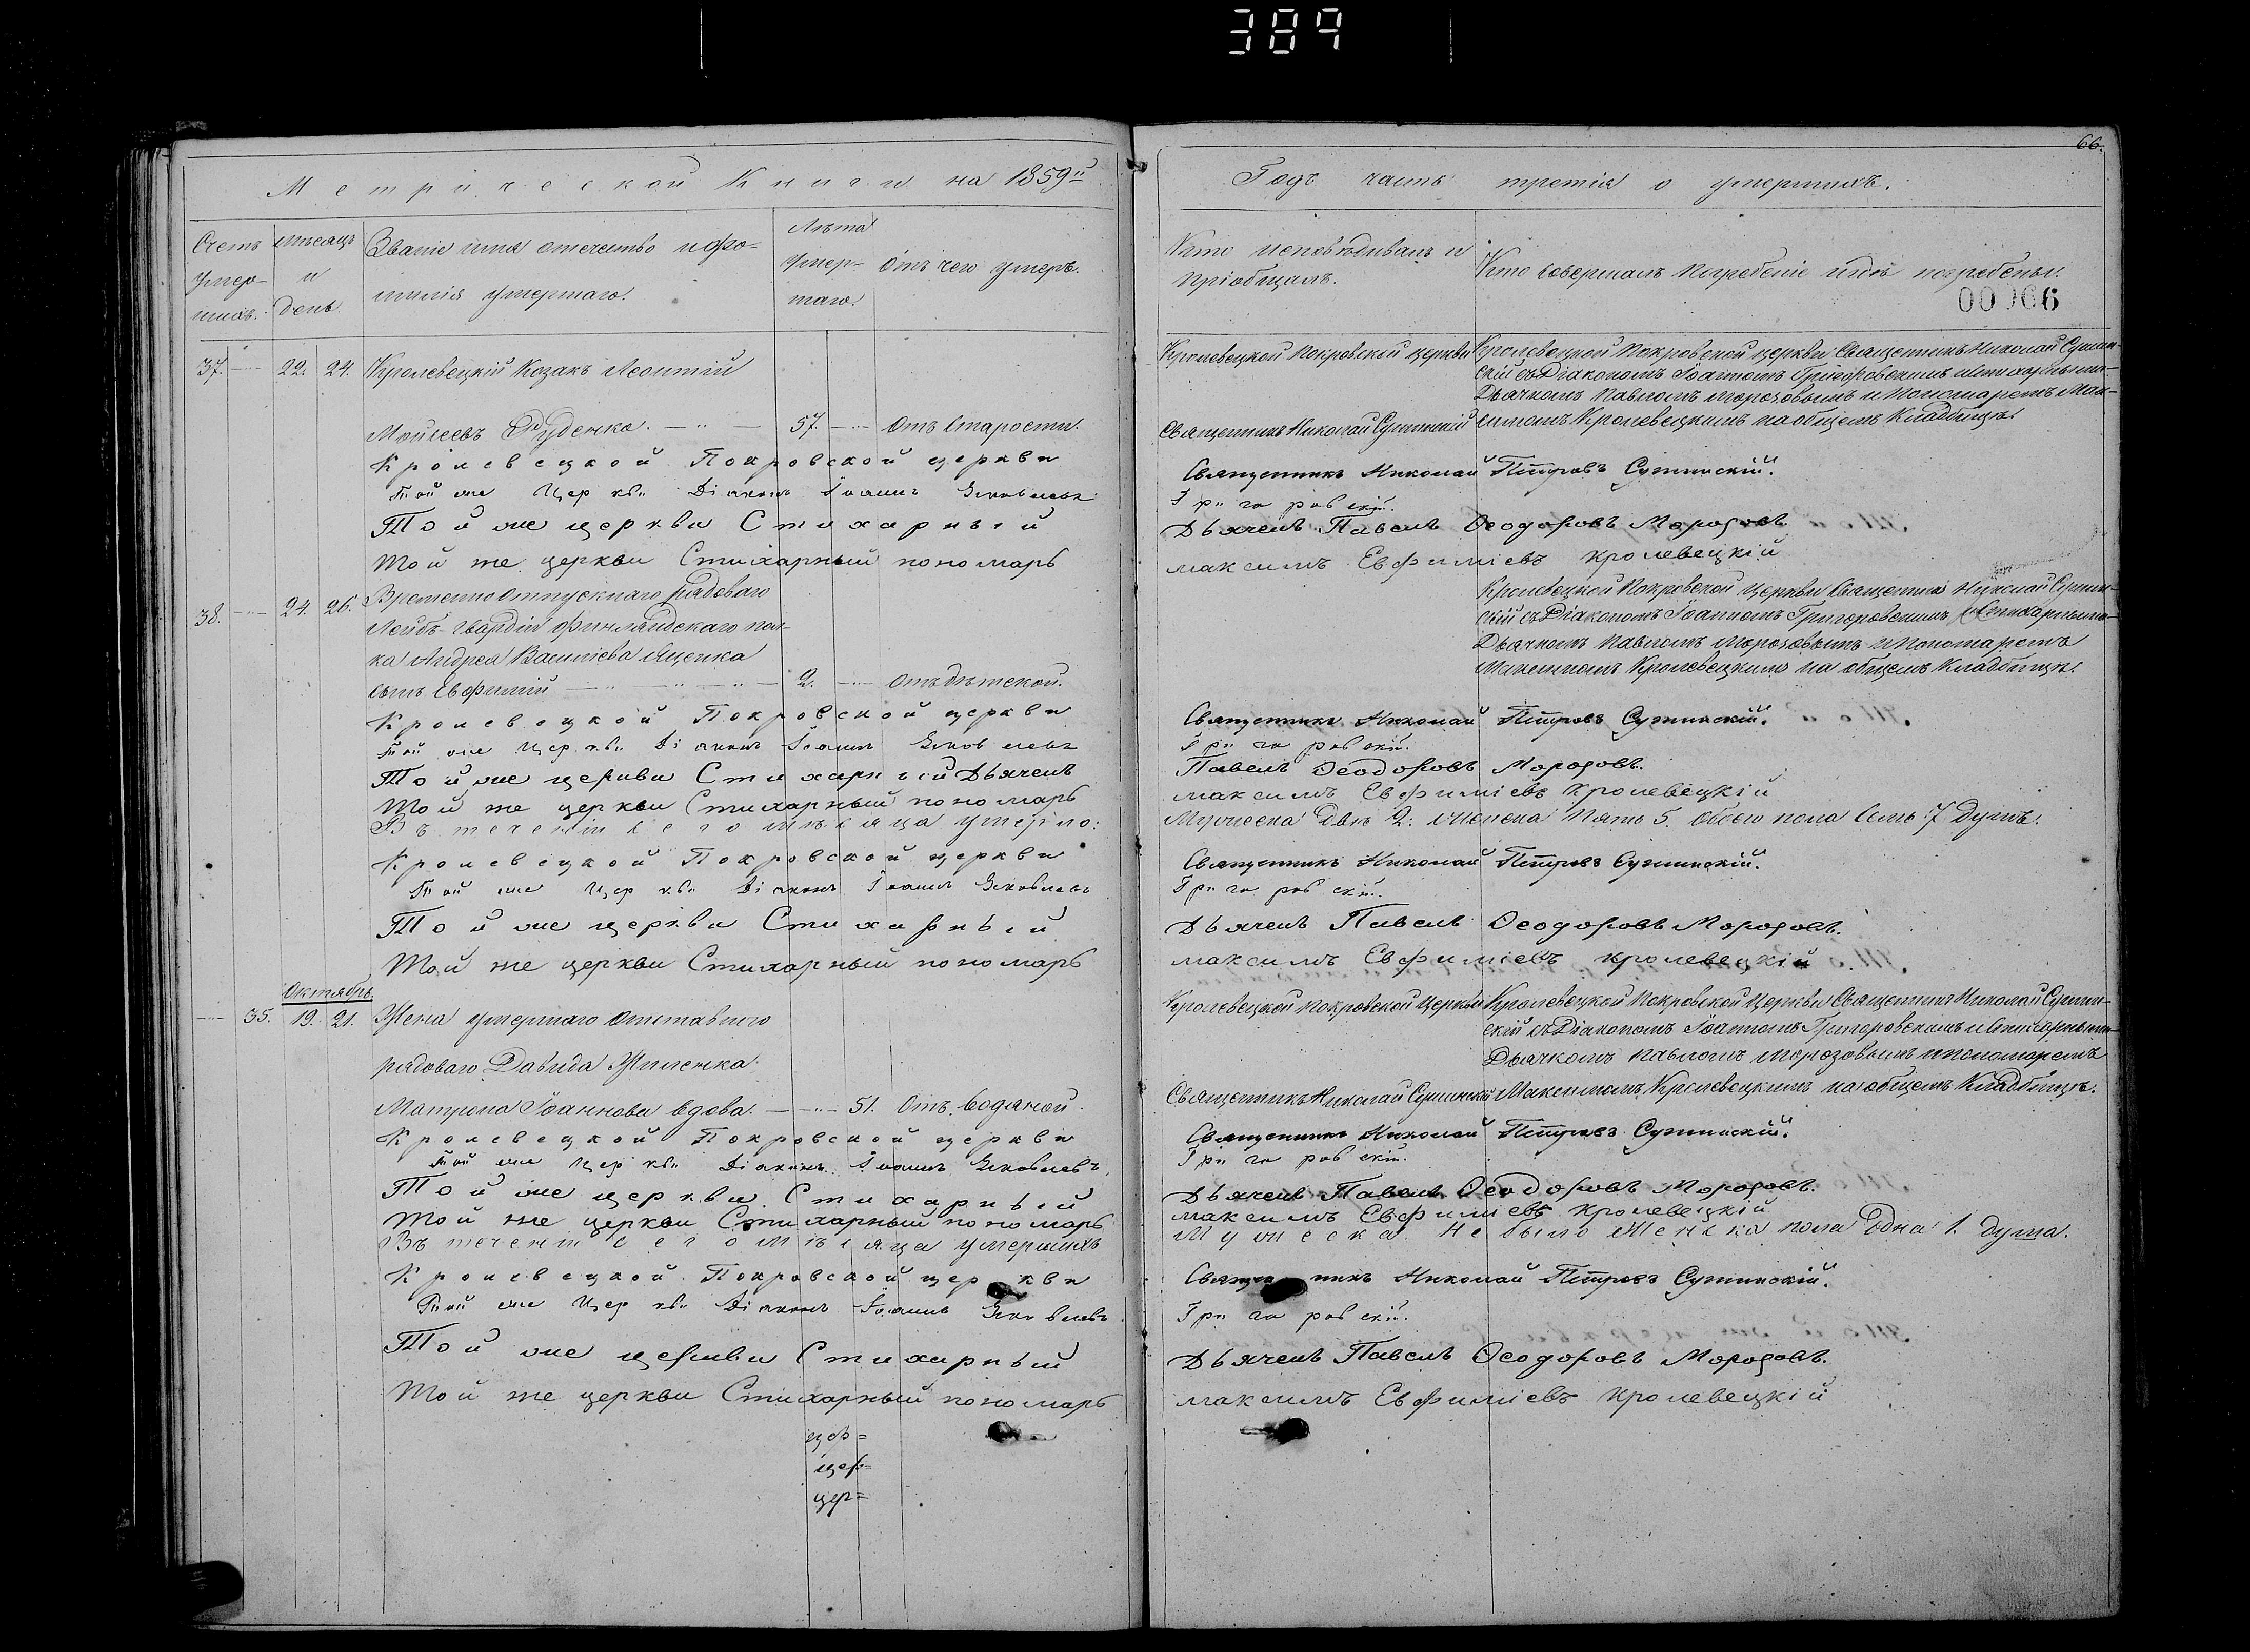 389
66.
Метрической Книги на 1859й
Годъ часть третія о умершихъ.
Счетъ умер- шихъ.
мѣсяцъ и день.
Званіе имя отечество и фа-
милія умершаго.
Лѣта умер- шаго.
Отъ чего умеръ.
Кто исповѣдивалъ и
пріобщалъ.
Кто совершалъ погребеніе и гдѣ погребены.
00066
37. 22. 24. Кролевецкій Козакъ Леонтій
Мойсеевъ Руденко. 57. Отъ старости.
Кролевецкой Покровской церкви
Священникъ Николай Сушинскій
Кролевецкой Покровской церкви Священникъ Николай Сушин-
скій съ Діакономъ Іоанномъ Григоровскимъ и стихарными
Дьячкомъ Павломъ Морозовымъ и Пономаремъ Мак-
симомъ Кролевецкимъ на общемъ Кладбищѣ.
Кролевецкой Покровской церкви Священникъ Николай Петровъ Сушинскій.
Той же Церкви Діаконъ Іоаннъ Яковлевъ Григоровскій.
Той же церкви Стихарный Дьячекъ Павелъ Ѳеодоровъ Морозовъ.
Той же церкви Стихарный пономарь максимъ Евфиміевъ кролевецкій
38. 24. 26. Временно отпускнаго рядоваго
Лейбъ-гвардіи Финляндскаго пол-
ка Андрея Василіева Яценка
сынъ Евфимій 2. Отъ дѣтской.
Кролевецкой Покровской Церкви Священникъ Николай Сушин-
скій съ Діакономъ Іоанномъ Григоровскимъ и Стихарными
Дьячкомъ Павломъ Морозовымъ и Пономаремъ
Максимомъ Кролевецкимъ на общемъ Кладбищѣ.
Кролевецкой Покровской церкви Священникъ Николай Петровъ Сушинскій.
Той же Церкви Діаконъ Іоаннъ Яковлевъ Григоровскій.
Той же церкви Стихарный Дьячекъ Павелъ Ѳеодоровъ Морозовъ.
Той же церкви Стихарный пономарь максимъ Евфиміевъ кролевецкій
Въ теченіи сего мѣсяца умерло: Мужеска Два 2. Женска Пять 5. Обоего пола семь 7 Душъ.
Кролевецкой Покровской церкви Священникъ Николай Петровъ Сушинскій.
Той же Церкви Діаконъ Іоаннъ Яковлевъ Григоровскій.
Той же церкви Стихарный Дьячекъ Павелъ Ѳеодоровъ Морозовъ.
Той же церкви Стихарный пономарь максимъ Евфиміевъ кролевецкій
Октябрь.
35. 19. 21. Жена умершаго отставного
рядоваго Давида
Матрона Іоаннова вдова. 51. Отъ водяной.
Кролевецкой Покровской Церкви
Священникъ Николай Сушинскій
Кролевецкой Покровской Церкви Священникъ Николай Сушин-
скій съ Діакономъ Іоанномъ Григоровскимъ и Стихарными
Дьячкомъ Павломъ Морозовымъ и пономаремъ
Максимомъ Кролевецкимъ на общемъ Кладбищѣ.
Кролевецкой Покровской церкви Священникъ Николай Петровъ Сушинскій.
Той же Церкви Діаконъ Іоаннъ Яковлевъ Григоровскій.
Той же церкви Стихарный Дьячекъ Павелъ Ѳеодоровъ Морозовъ.
Той же церкви Стихарный пономарь максимъ Евфиміевъ кролевецкій
Въ теченіи сего мѣсяца умершихъ Мужеска Не было Женска пола Одна 1. душа.
Кролевецкой Покровской церкви Священникъ Николай Петровъ Сушинскій.
Той же Церкви Діаконъ Іоаннъ Яковлевъ Григоровскій.
Той же церкви Стихарный Дьячекъ Павелъ Ѳеодоровъ Морозовъ.
Той же церкви Стихарный пономарь максимъ Евфиміевъ кролевецкій
цер=
цер=
цер=